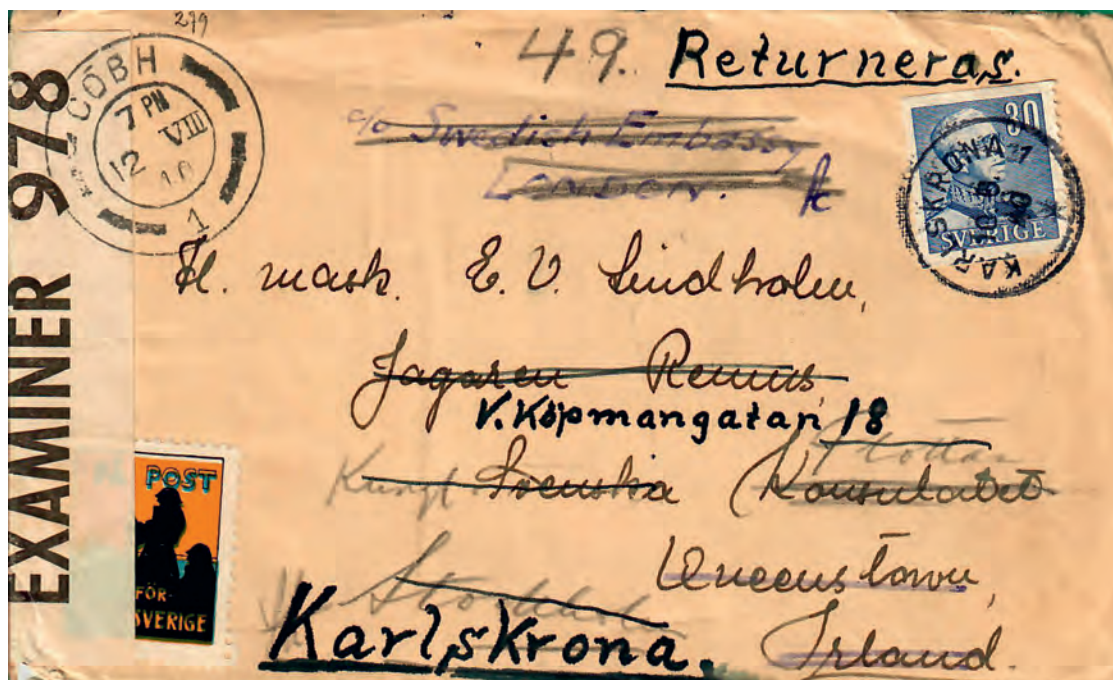 279
49. Returneras.
CÓBH
7 PM
12 VIII
1
EXAMINER 978
c/o Swedish Embassy,
London.
30
SVERIGE
KARLSKRONA 1
Fl. mask. E. V. Lindholm,
Jagaren Remus,
V. Köpmangatan 18
Flottan
Kungl. Svenska Konsulatet
Queenstown,
Stockholm
Karlskrona. Irland.
POST
FÖR
SVERIGE